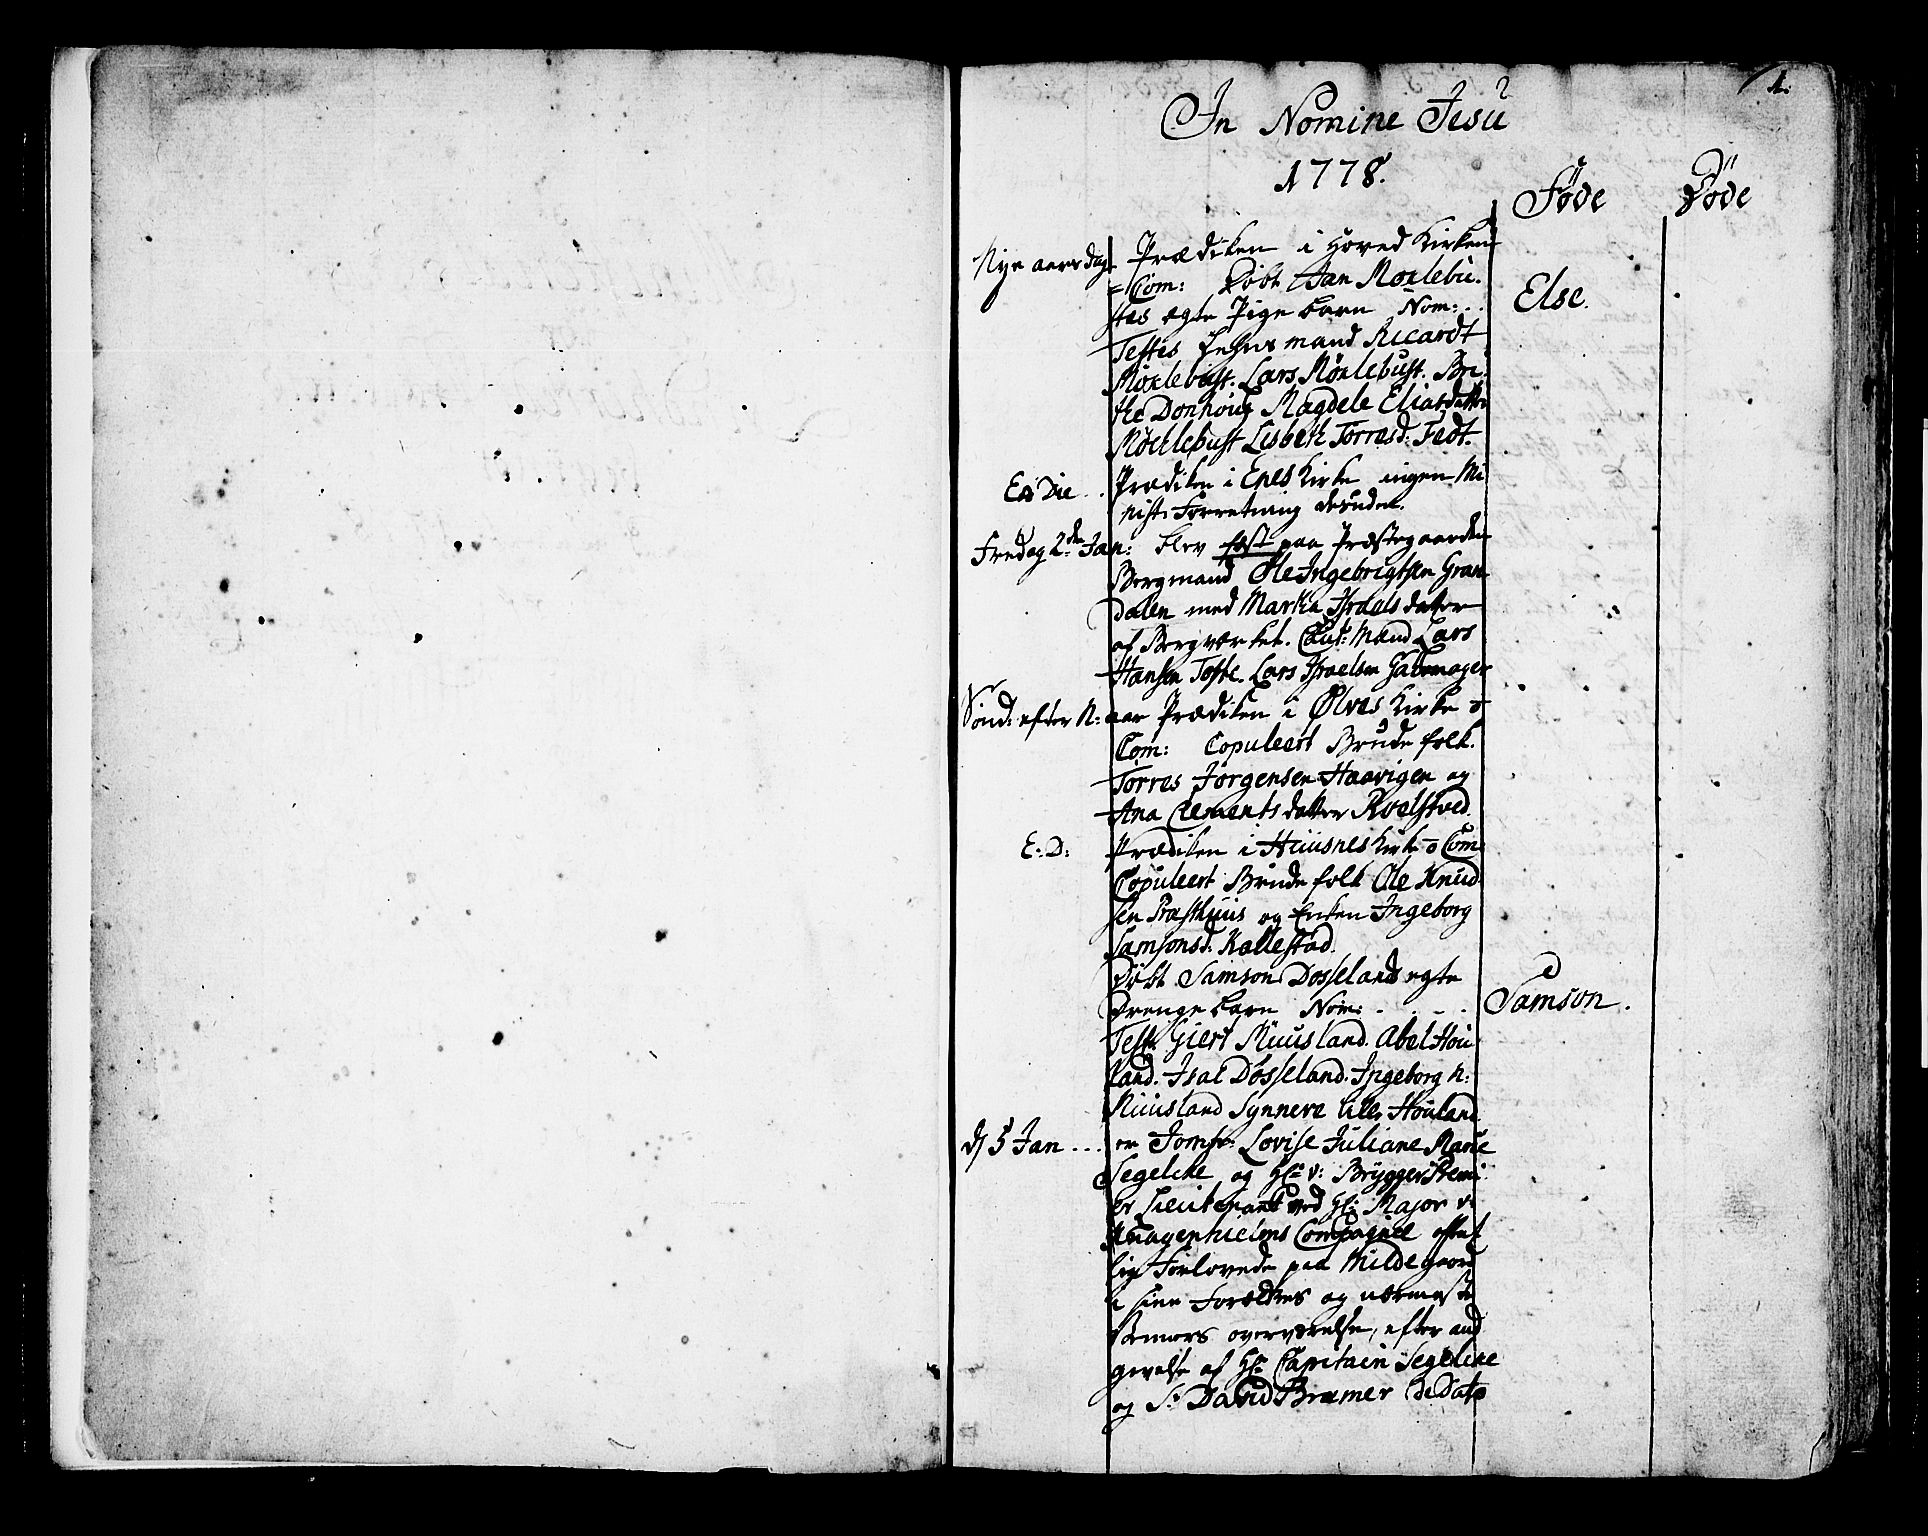 1.
In Nomine Jesu
1778.
Føde Døde
Nye aarsdag Prædiken i Hoved Kirken
= Com: Døbt Jan Moxlebu-
stes ægte Pige barn Nom: .. Else.
Testes Lehnsmand Ricardt
Möxlebust. Lars Möxlebust. Bri-
the Donhoug Magdele Eliasdatter
Möchlebust Lisbeth Torresd: Fedt.
En Die .. Prædiken i Enes Kirke ingen Mi
nist: Forretning desuden.
Fredag 2den Jan: blev fæst paa Præstegaarden
Bergmand Ole Ingebrigtsen Gran-
dalen med Martha Israels datter
af Bergværket. Caut: Mænd Lars
Hansen Tofte. Lars Israelsen
Sönd: efter N: aar Prædiken i Ølves Kirke o
Com: Copuleert Brude folk.
Torres Jorgensen Haavigen og
Ana Clements datter Roelstved.
E: D: Prædiken i Huusnes Kirke o Com
Copuleert Brude folk Ole Knud-
sen Præsthuus og Enken Ingeborg
Samsonsd: Kallestad.
Döbt Samson Dosselands egte
Drenge barn Nom: . . . . Samson.
Test: Giert Muusland. Abel Hou-
land. Isac Dosseland. Ingeborg N:
Muusland Synneve Houland
d 5 Jan ... er Jomfr: Lovise Juliane Marie
Segelche og Hr: v: Brygger Premi
er Lieutenant ved Hr: Major v:
Knagenhielms Compagnie offent
lig Forlovede paa Milde gaard
i sine Forældres og nærmeste
Venners overværelse, efter and
givelse af Hr: Capitain Segelche
og Sr: David Bræmer de Dato